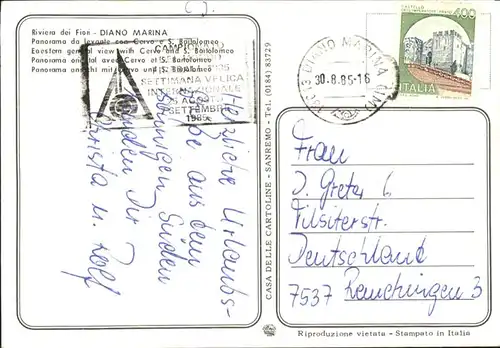 Riviera dei Fiori - DIANO MARINA
Panorama da levante con Cervo e S. Bartolomeo
Eastern general view with Cervo and S. Bartolomeo
Panorama oriental avec Cervo et S. Bartolomeo
Panorama ansicht mit Cervo und S. Bartolomeo
CAMPION
SETTIMANA VELICA
INTERNAZIONALE
AGO
SETTEMBRE
1985
DIANO MARINA (IM)
30.8.85-16
400
ITALIA
Herzliche Urlaubs-
aus dem
sonnigen Süden
senden Dir
Christa u. Rolf
CASA DELLE CARTOLINE - SANREMO - Tel. (0184) 83729
Frau
J. Greta 6
Tilsiterstr.
Deutschland
7537 Remchingen 3
Riproduzione vietata - Stampato in Italia